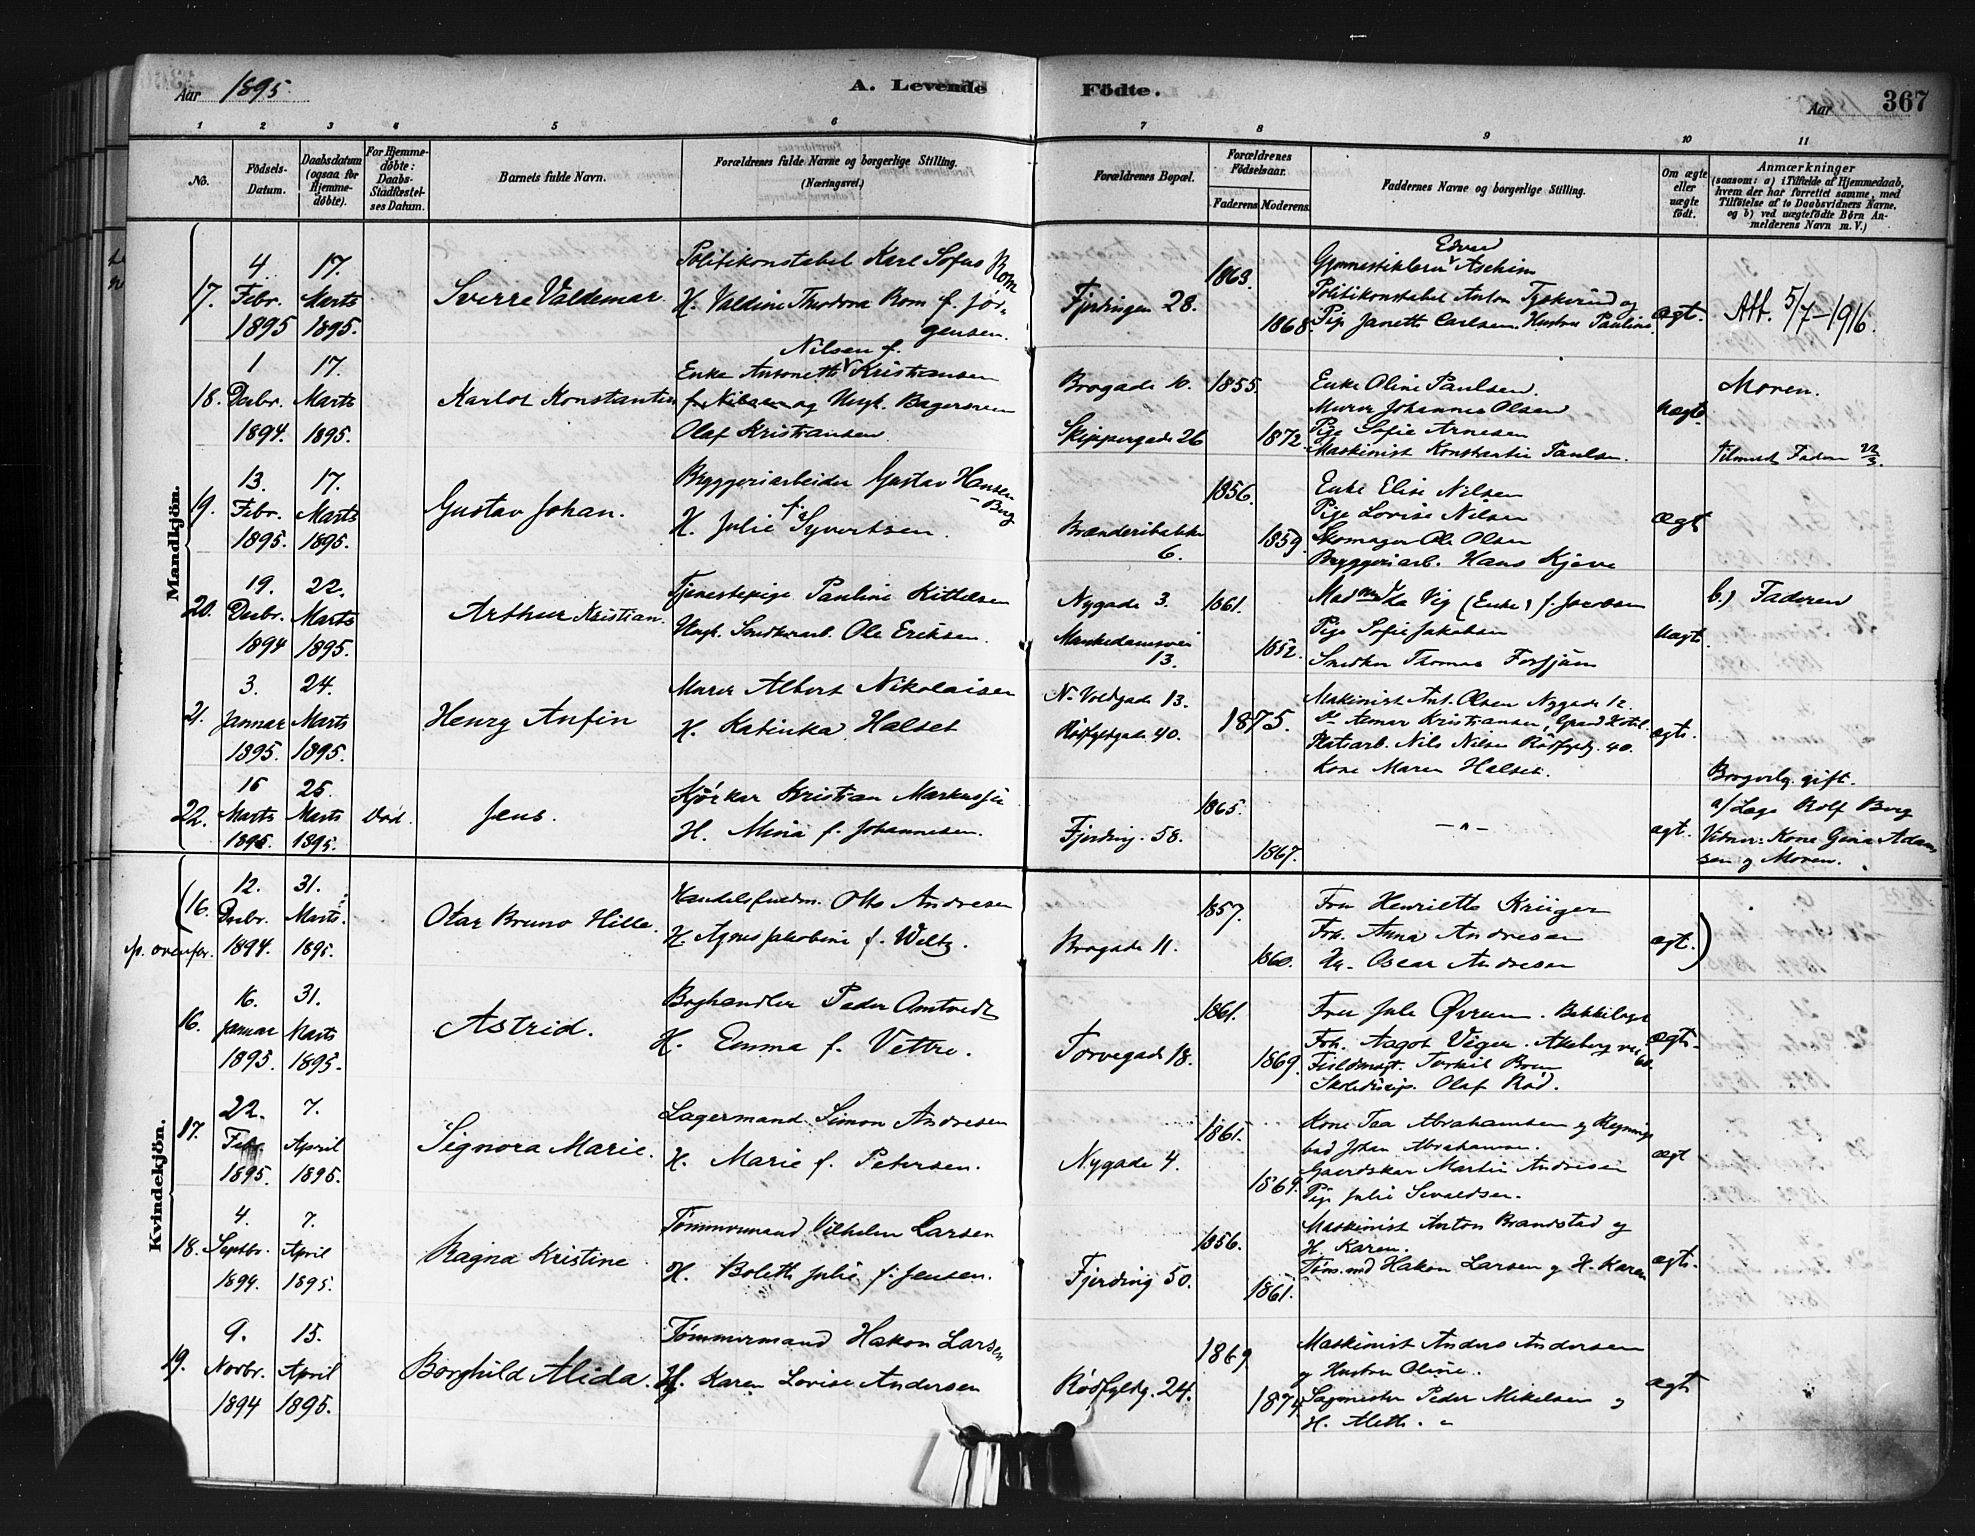 Aar 1895.
A. Levende Födte.
Aar
367
1 2 3 4 5 6 7 8 9 10 11
No.
Födsels-Datum.
Daabsdatum (ogsaa for Hjemmedøbte).
For Hjemmedøbte: Daabs-Stadfæstelses Datum.
Barnets fulde Navn.
Forældrenes fulde Navne og borgerlige Stilling. (Næringsvei.)
Forældrenes Bopæl.
Forældrenes Fødselsaar.
Faderens Moderens
Faddernes Navne og borgerlige Stilling.
Om ægte eller uægte født.
Anmærkninger
(saasom: a) i Tilfælde af Hjemmedaab, hvem der har forrettet samme, med Tilføielse af to Daabsvidners Navne, og b) ved uægtefødte Børn Anmelderens Navn m. V.)
Mandkjön.
17.
4. Febr. 1895
17. Marts 1895.
Sverre Valdemar.
Politikonstabel Karl Sofus Rom
H. Valdine Theodora Rom f. Jörgensen.
Fjerdingen 28.
1863.
1868.
Edvard
Aschim
Politikonstabel Anton og
Pige Janette Carlsen. Hustru Pauline
ægt.
Att. 5/7-1916.
18.
1 Decbr. 1894.
17. Marts 1895.
Karlot Konstantin
Nilsen f.
Enke Antonette Kristiansen
f. Nilsen og Ungk. Bagersvend
Olaf Kristiansen
Brogade 10.
Skippergade 26
1855.
1872.
Enke Oline Paulsen.
Murer Johannes Olsen
Pige Sofie Arnesen
Maskinist Konstantin Paulsen.
uægte.
Moren.
19.
13. Febr. 1895.
17. Marts 1895.
Gustav Johan.
Bryggeriarbeider Gustav Hansen Berg
H. Julie f. Syvertsen.
Brænderibakken 6.
1856.
1859.
Enke Elise Nilsen
Pige Lovise Nilsen
Skomager Ole Olsen
Bryggeriarb. Hans Kjøve
ægt
20.
19. Decbr. 1894
22. Marts 1895.
Arthur Kristian.
Tjenestepige Pauline Kittelsen
Ungk. Snedkerarb. Ole Eriksen.
Nygade 3.
Munkedamsvei 13.
1861.
1852.
Vig (Enke) f. Jacobsen
Pige Sofie Jakobsen
Snedker Thomas
uægt.
b.) Faderen
21.
3. Januar 1895.
24. Marts 1895.
Henry Anfin
Murer Albert Nikolaisen
H. Katinka Halset
N. Voldgade 13.
Rødfyldgade 40.
1875.
Maskinist Ant. Olsen Nygade 12.
Kristiansen, Grand Hotel.
Pladsarb. Nils Nilsen Rødfyldg. 40.
Kone Maren Halset.
ægt.
Borgerlig gift.
22.
15 Marts 1895
25 Marts 1895.
Død.
Jens.
Kjörkar Kristian Markussen
H. Mina f. Johannesen.
Fjerding. 58.
1865.
1867.
-"-
ægt.
a/ Læge Rolf Borg
Vidner: Kone Gina Adamsen og Moren.
Kvindekjön.
(16. sp. ovenfor.
12. Decbr. 1894.
31. Marts 1895.
Otar Bruno Hille.
Handelsfuldm. Otto Andresen
H. Agnes Jakobine f. Weltz.
Brogade 11.
1857.
1860.
Fru Henriette Krüger
Frk. Anna Andresen
Hr. Oscar Andresen
ægt.)
16.
16. Januar 1895.
31. Marts 1895.
Astrid.
Boghandler Peder Omtvedt
H. Emma f. Vettre.
Torvegade 18.
1861.
1869.
Fru Jule Øvrum. Bekkelaget
Frk. Aagot Viger. Akebergvei 60.
Torkel Brun
Olaf Rød.
ægt.
17.
22. Febr. 1895.
7. April 1895.
Signora Marie.
Lagermand Simon Andresen
H. Marie f. Petersen.
Nygade 4.
1861.
1869.
Kone Taa Abrahamsen og
Johan Abrahamsen.
Martin Andresen
Pige Julie Sivaldsen.
ægt
18.
4. Septbr. 1894.
7. April 1895.
Ragna Kristine
Tømmermand Vilhelm Larsen
H. Bolette Julie f. Jensen.
Fjerding 50.
1856.
1861.
Maskinist Anton Brandstad og
H. Karen.
Tøm.md Hakon Larsen og H. Karen
ægt.
19.
9. Novbr. 1894
15. April 1895.
Borghild Alida.
Tømmermand Hakon Larsen
H. Karen Lovise Andersen
Rødfyldg. 24.
1869
1874.
Maskinist Anders Andersen
og Hustru Oline.
Sagmester Peder Mikelsen og
H. Aleth.
ægt